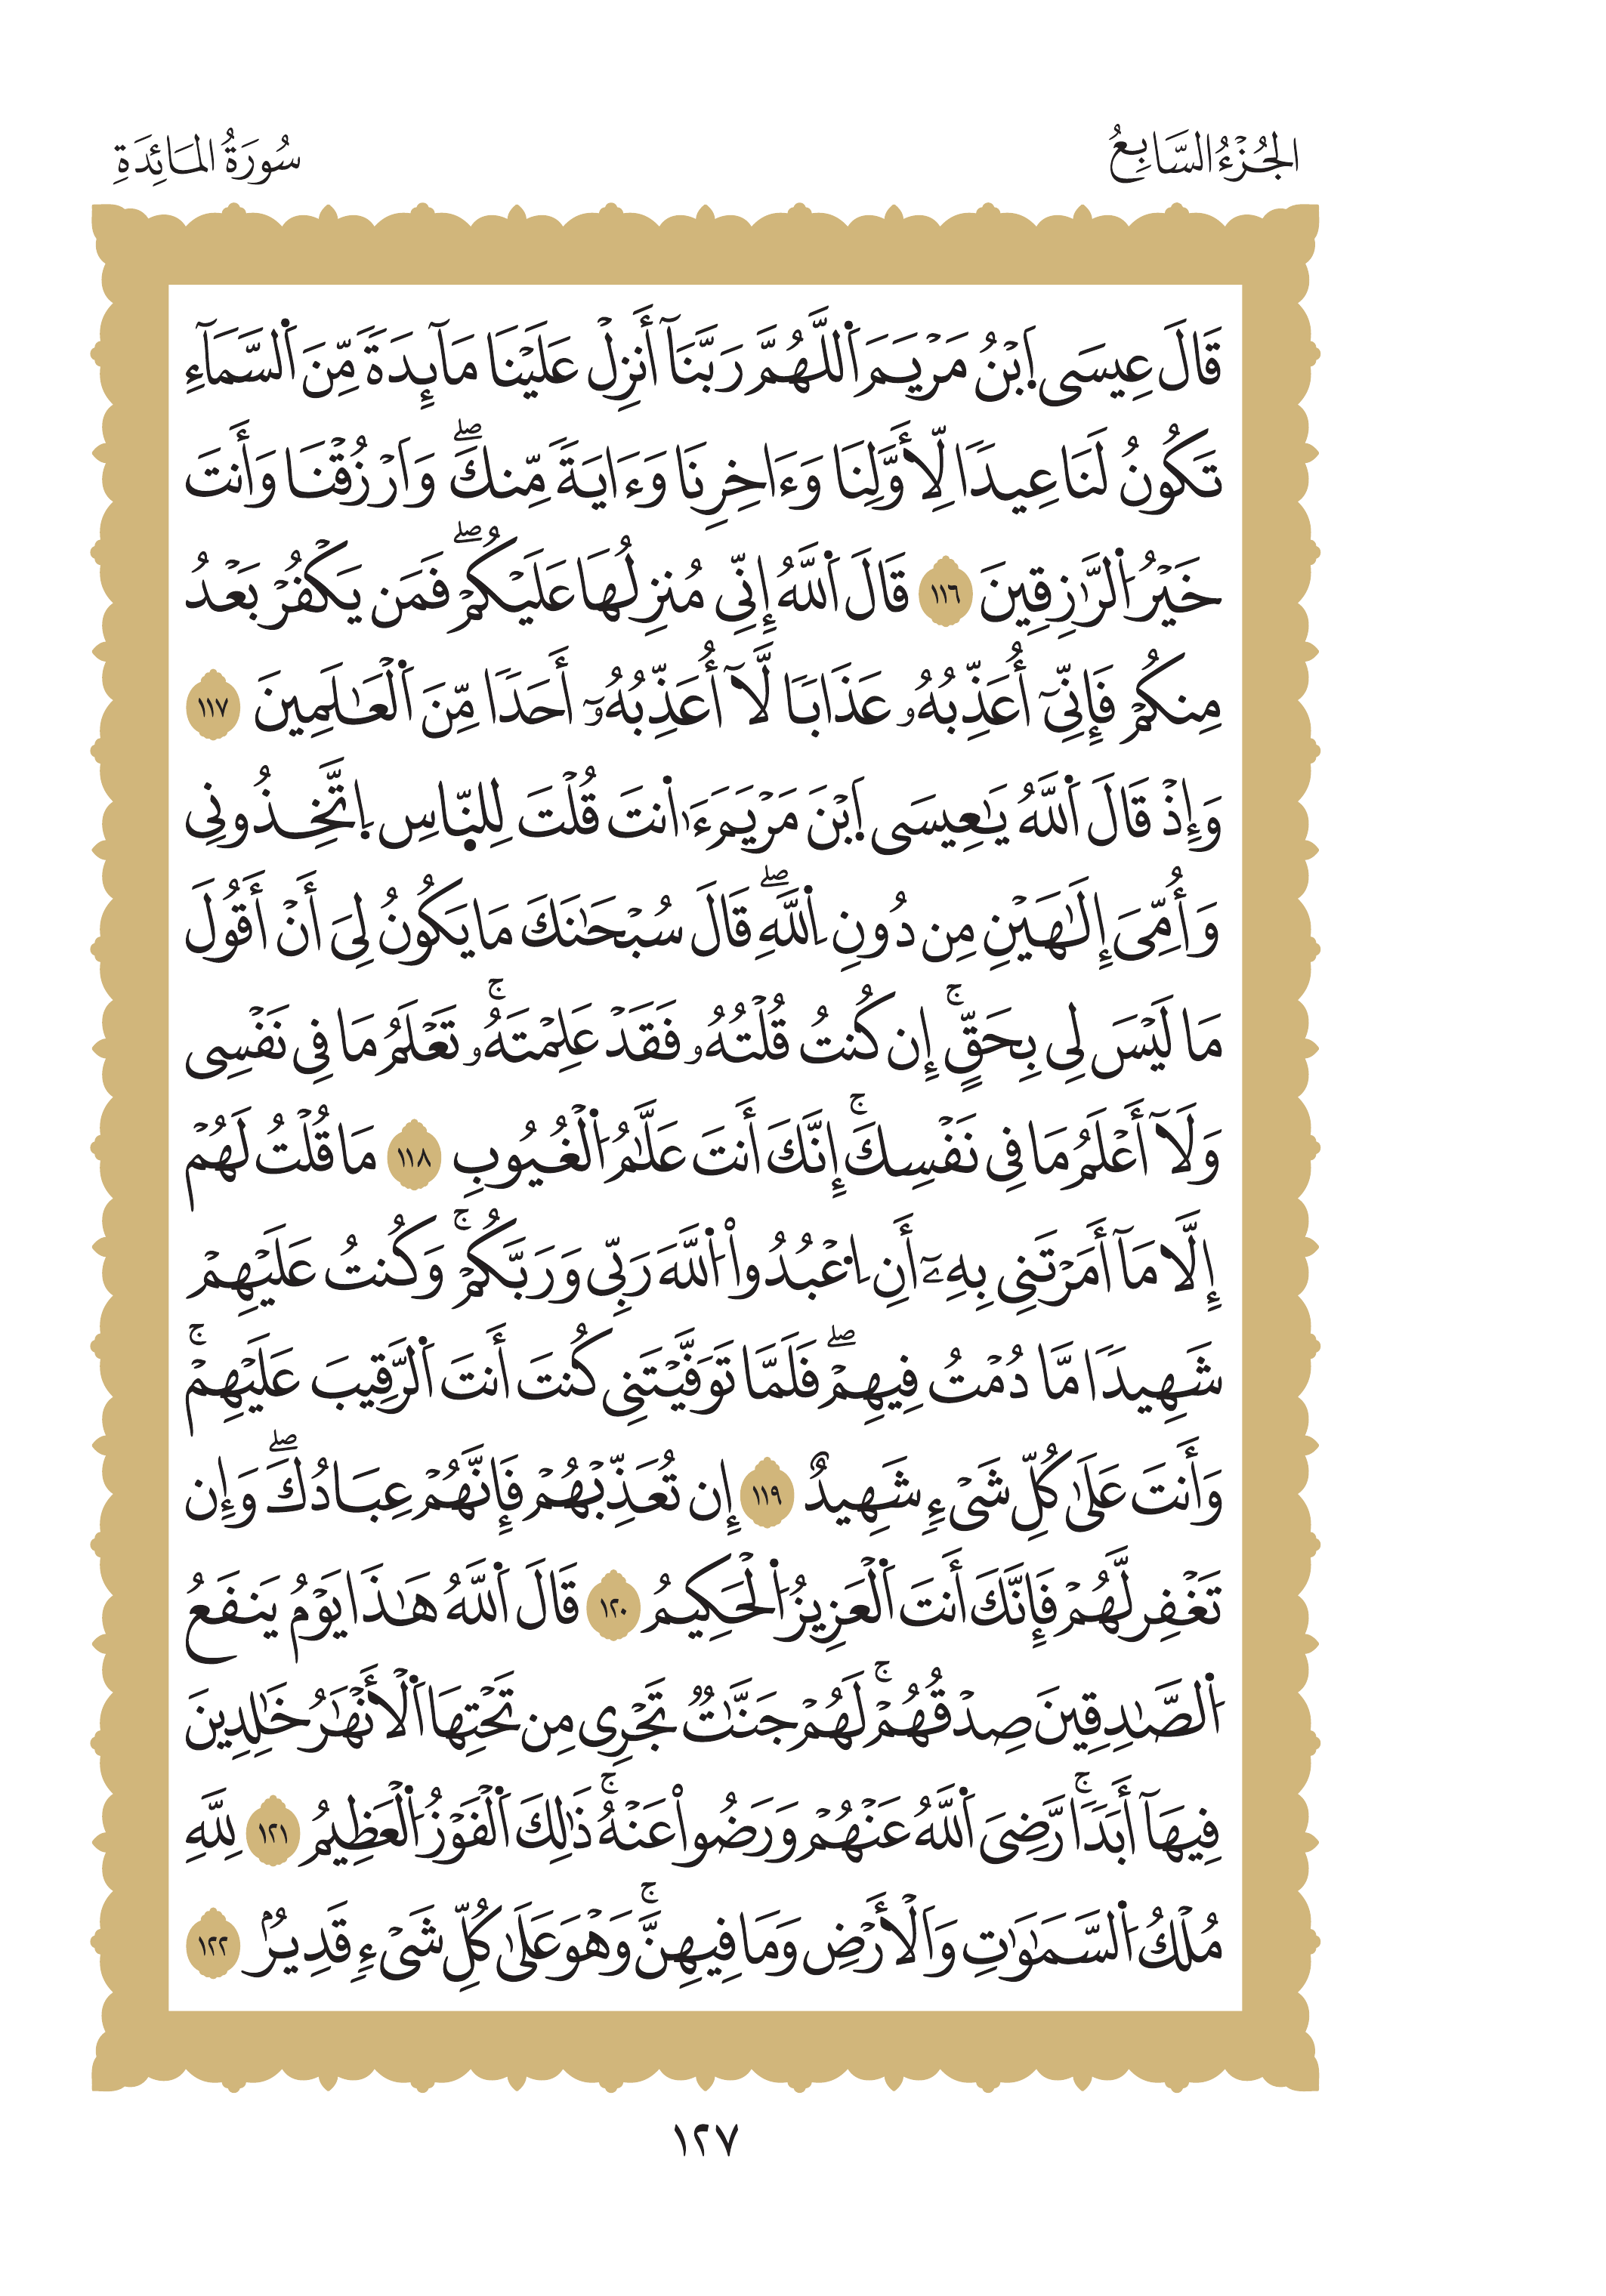 الجُزْءُ السَّابِعُ
سُورَةُ المَائِدَةِ
قَالَ عِيسَى اَ۪بْنُ مَرْيَمَ اَ۬للَّهُمَّ رَبَّنَآ أَنزِلْ عَلَيْنَا مَآئِدَةً مِّنَ اَ۬لسَّمَآءِ
تَكُونُ لَنَا عِيدًا لِّأَوَّلِنَا وَءَاخِرِنَا وَءَايَةً مِّنكَۖ وَارْزُقْنَا وَأَنتَ
خَيْرُ اُ۬لرَّٰزِقِينَ ١١٦ قَالَ اَ۬للَّهُ إِنِّي مُنزِلُهَا عَلَيْكُمْۖ فَمَن يَكْفُرْ بَعْدُ
مِنكُمْ فَإِنِّيٓ أُعَذِّبُهُۥ عَذَابًا لَّآ أُعَذِّبُهُۥٓ أَحَدًا مِّنَ اَ۬لْعَٰلَمِينَ ١١٧
وَإِذْ قَالَ اَ۬للَّهُ يَٰعِيسَى اَ۪بْنَ مَرْيَمَ ءَا۬نتَ قُلْتَ لِلنَّاسِ اِ۪تَّخِذُونِي
وَأُمِّيَ إِلَٰهَيْنِ مِن دُونِ اِ۬للَّهِۖ قَالَ سُبْحَٰنَكَ مَا يَكُونُ لِيَ أَنْ أَقُولَ
مَا لَيْسَ لِي بِحَقٍّۚ إِن كُنتُ قُلْتُهُۥ فَقَدْ عَلِمْتَهُۥۚ تَعْلَمُ مَا فِي نَفْسِي
وَلَآ أَعْلَمُ مَا فِي نَفْسِكَۚ إِنَّكَ أَنتَ عَلَّٰمُ اُ۬لْغُيُوبِ ١١٨ مَا قُلْتُ لَهُمْ
إِلَّا مَآ أَمَرْتَنِي بِهِۦٓ أَنِ اِ۟عْبُدُواْ اُ۬للَّهَ رَبِّي وَرَبَّكُمْۚ وَكُنتُ عَلَيْهِمْ
شَهِيدًا مَّا دُمْتُ فِيهِمْۖ فَلَمَّا تَوَفَّيْتَنِي كُنتَ أَنتَ اَ۬لرَّقِيبَ عَلَيْهِمْۚ
وَأَنتَ عَلَىٰ كُلِّ شَيْءٍ شَهِيدٌ ١١٩ إِن تُعَذِّبْهُمْ فَإِنَّهُمْ عِبَادُكَۖ وَإِن
تَغْفِر لَّهُمْ فَإِنَّكَ أَنتَ اَ۬لْعَزِيزُ اُ۬لْحَكِيمُ ١٢٠ قَالَ اَ۬للَّهُ هَٰذَا يَوْمُ يَنفَعُ
اُ۬لصَّٰدِقِينَ صِدْقُهُمْۚ لَهُمْ جَنَّٰتٌ تَجْرِي مِن تَحْتِهَا اَ۬لْأَنْهَٰرُ خَٰلِدِينَ
فِيهَآ أَبَدًاۚ رَّضِيَ اَ۬للَّهُ عَنْهُمْ وَرَضُواْ عَنْهُۚ ذَٰلِكَ اَ۬لْفَوْزُ اُ۬لْعَظِيمُ ١٢١ لِلَّهِ
مُلْكُ اُ۬لسَّمَٰوَٰتِ وَالْأَرْضِ وَمَا فِيهِنَّۚ وَهْوَ عَلَىٰ كُلِّ شَيْءٍ قَدِيرٌ ١٢٢
١٢٧